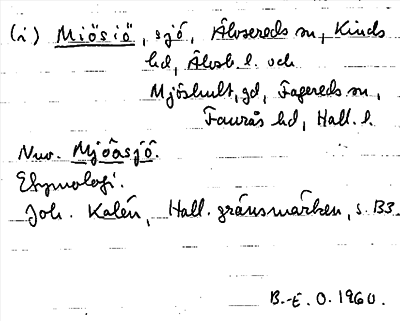 (i) Miösiö, sjö, Älvsereds sn, Kinds
hd, Älvsb. l. och
Mjöshult, gd, Fagereds sn,
Faurås hd, Hall. l.
Nuv. Mjöasjö.
Etymologi.
Joh. Kalén, Hall. gränsmärken, s. 133.
B.-E. O. 1960.